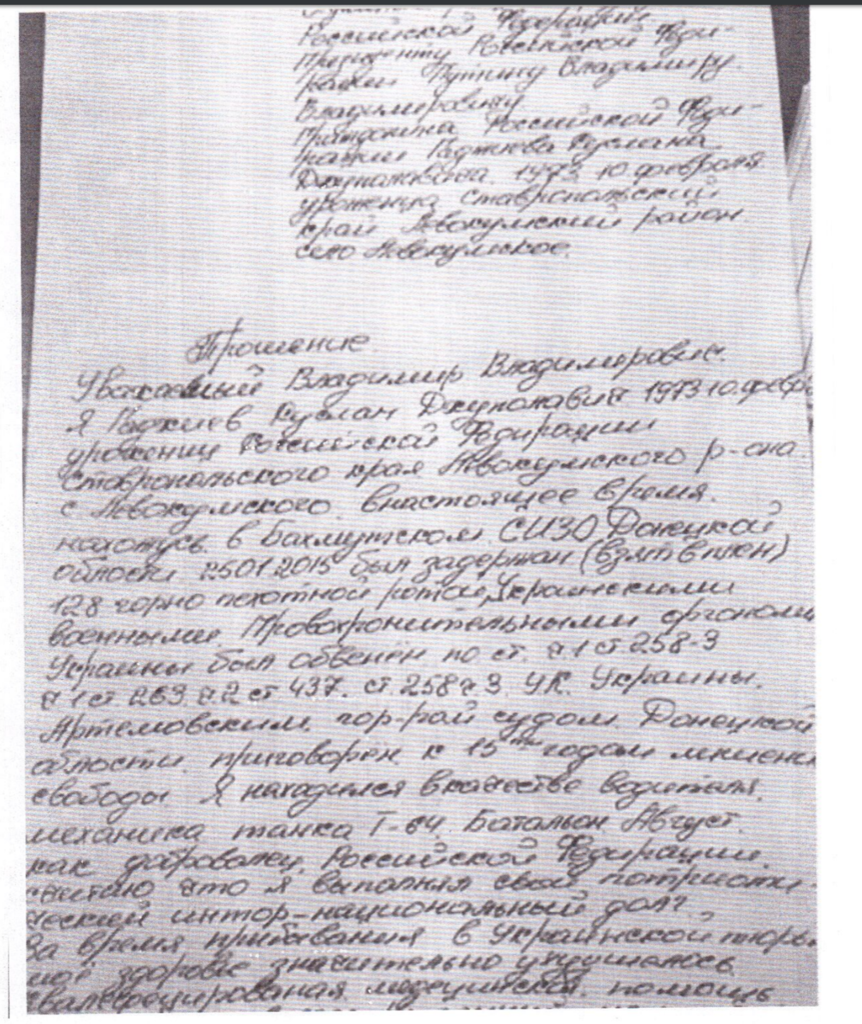 Российской Федерации
Президенту Российской Феди-
рации Путину Владимиру
Владимировичу
Гражданина Российской Феди-
рации Гаджиева Руслана
1973 10 февраля
уроженца Ставропольский
край Левокумский район
село Левокумское.
Прошение
Уважаемый Владимир Владимирович.
Я Гаджиев Руслан 1973 10. февр
уроженец Российской Федирации
Ставропольского края Левокумского р-она.
с Левокумского. внастоящее время.
нахожусь в Бахмутском СИЗО Донецкой
области 25012015 был задержан (взят в плен)
128 горно пехотной ротай, Украинскими
военными. Провохронительными органоми
Украины был обвенен по ст. ч1 ст 258-3
ч1 ст. 263. ч.2 ст 437. ст. 258 ч 3. УК. Украины.
Артемовским. гор-рай судом. Донецкой
области. приговорен к 15 годам
свободы Я находился вкачестве водителя.
механика танка Т-64. Батальон Август.
как доброволец. Российской Федирации.
считаю что я выполнял свой потриоти-
ческий интор-национальный долг.
За время прибывания в Украинской тюрь
моё здоровье значительно ухудшалось
медецинская помощь